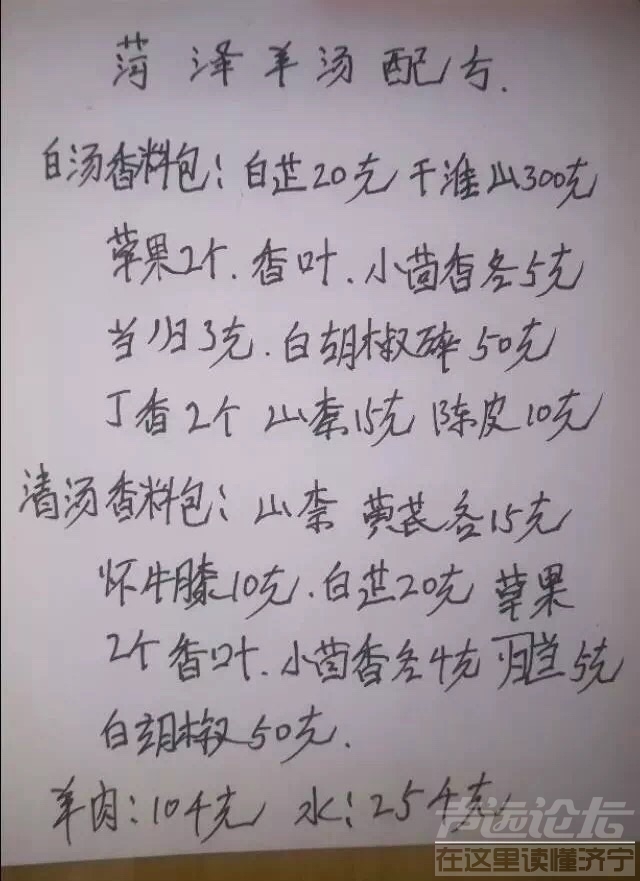 菏泽羊汤配方.
白汤香料包：白芷20克 干淮山300克
草果2个.香叶.小茴香各5克
当归3克.白胡椒碎50克
丁香2个 山柰15克 陈皮10克
清汤香料包：山柰 黄芪各15克
怀牛膝10克.白芷20克 草果
2个香叶.小茴香各4克 5克
白胡椒50克.
羊肉：10千克 水：25千克
声远论坛
在这里读懂济宁